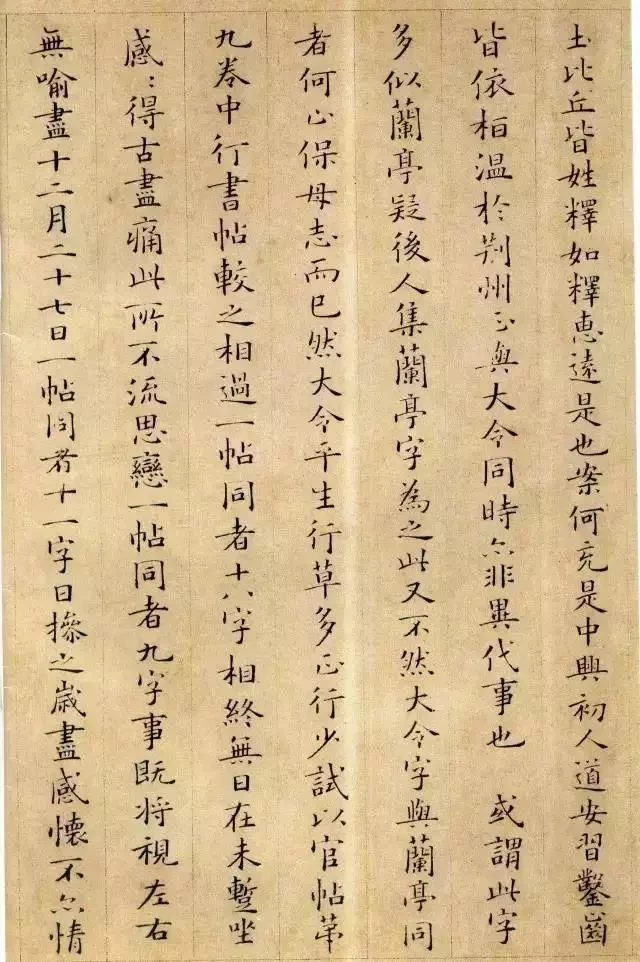 土比丘皆姓釋如釋惠遠是也案何充是中興初人道安習鑿齒
皆依桓温於荆州正與大令同時亦非異代事也 或謂此字
多似蘭亭疑後人集蘭亭字為之此又不然大令字與蘭亭同
者何止保母志而已然大令平生行草多正行少試以官帖第
九卷中行書帖較之相過一帖同者十八字相終無日在未蹔坐
感〻得古盡痛此所不流思戀一帖同者九字事既將視左右
無喻盡十二月二十七日一帖同者十一字日操之歲盡感懷不亦情